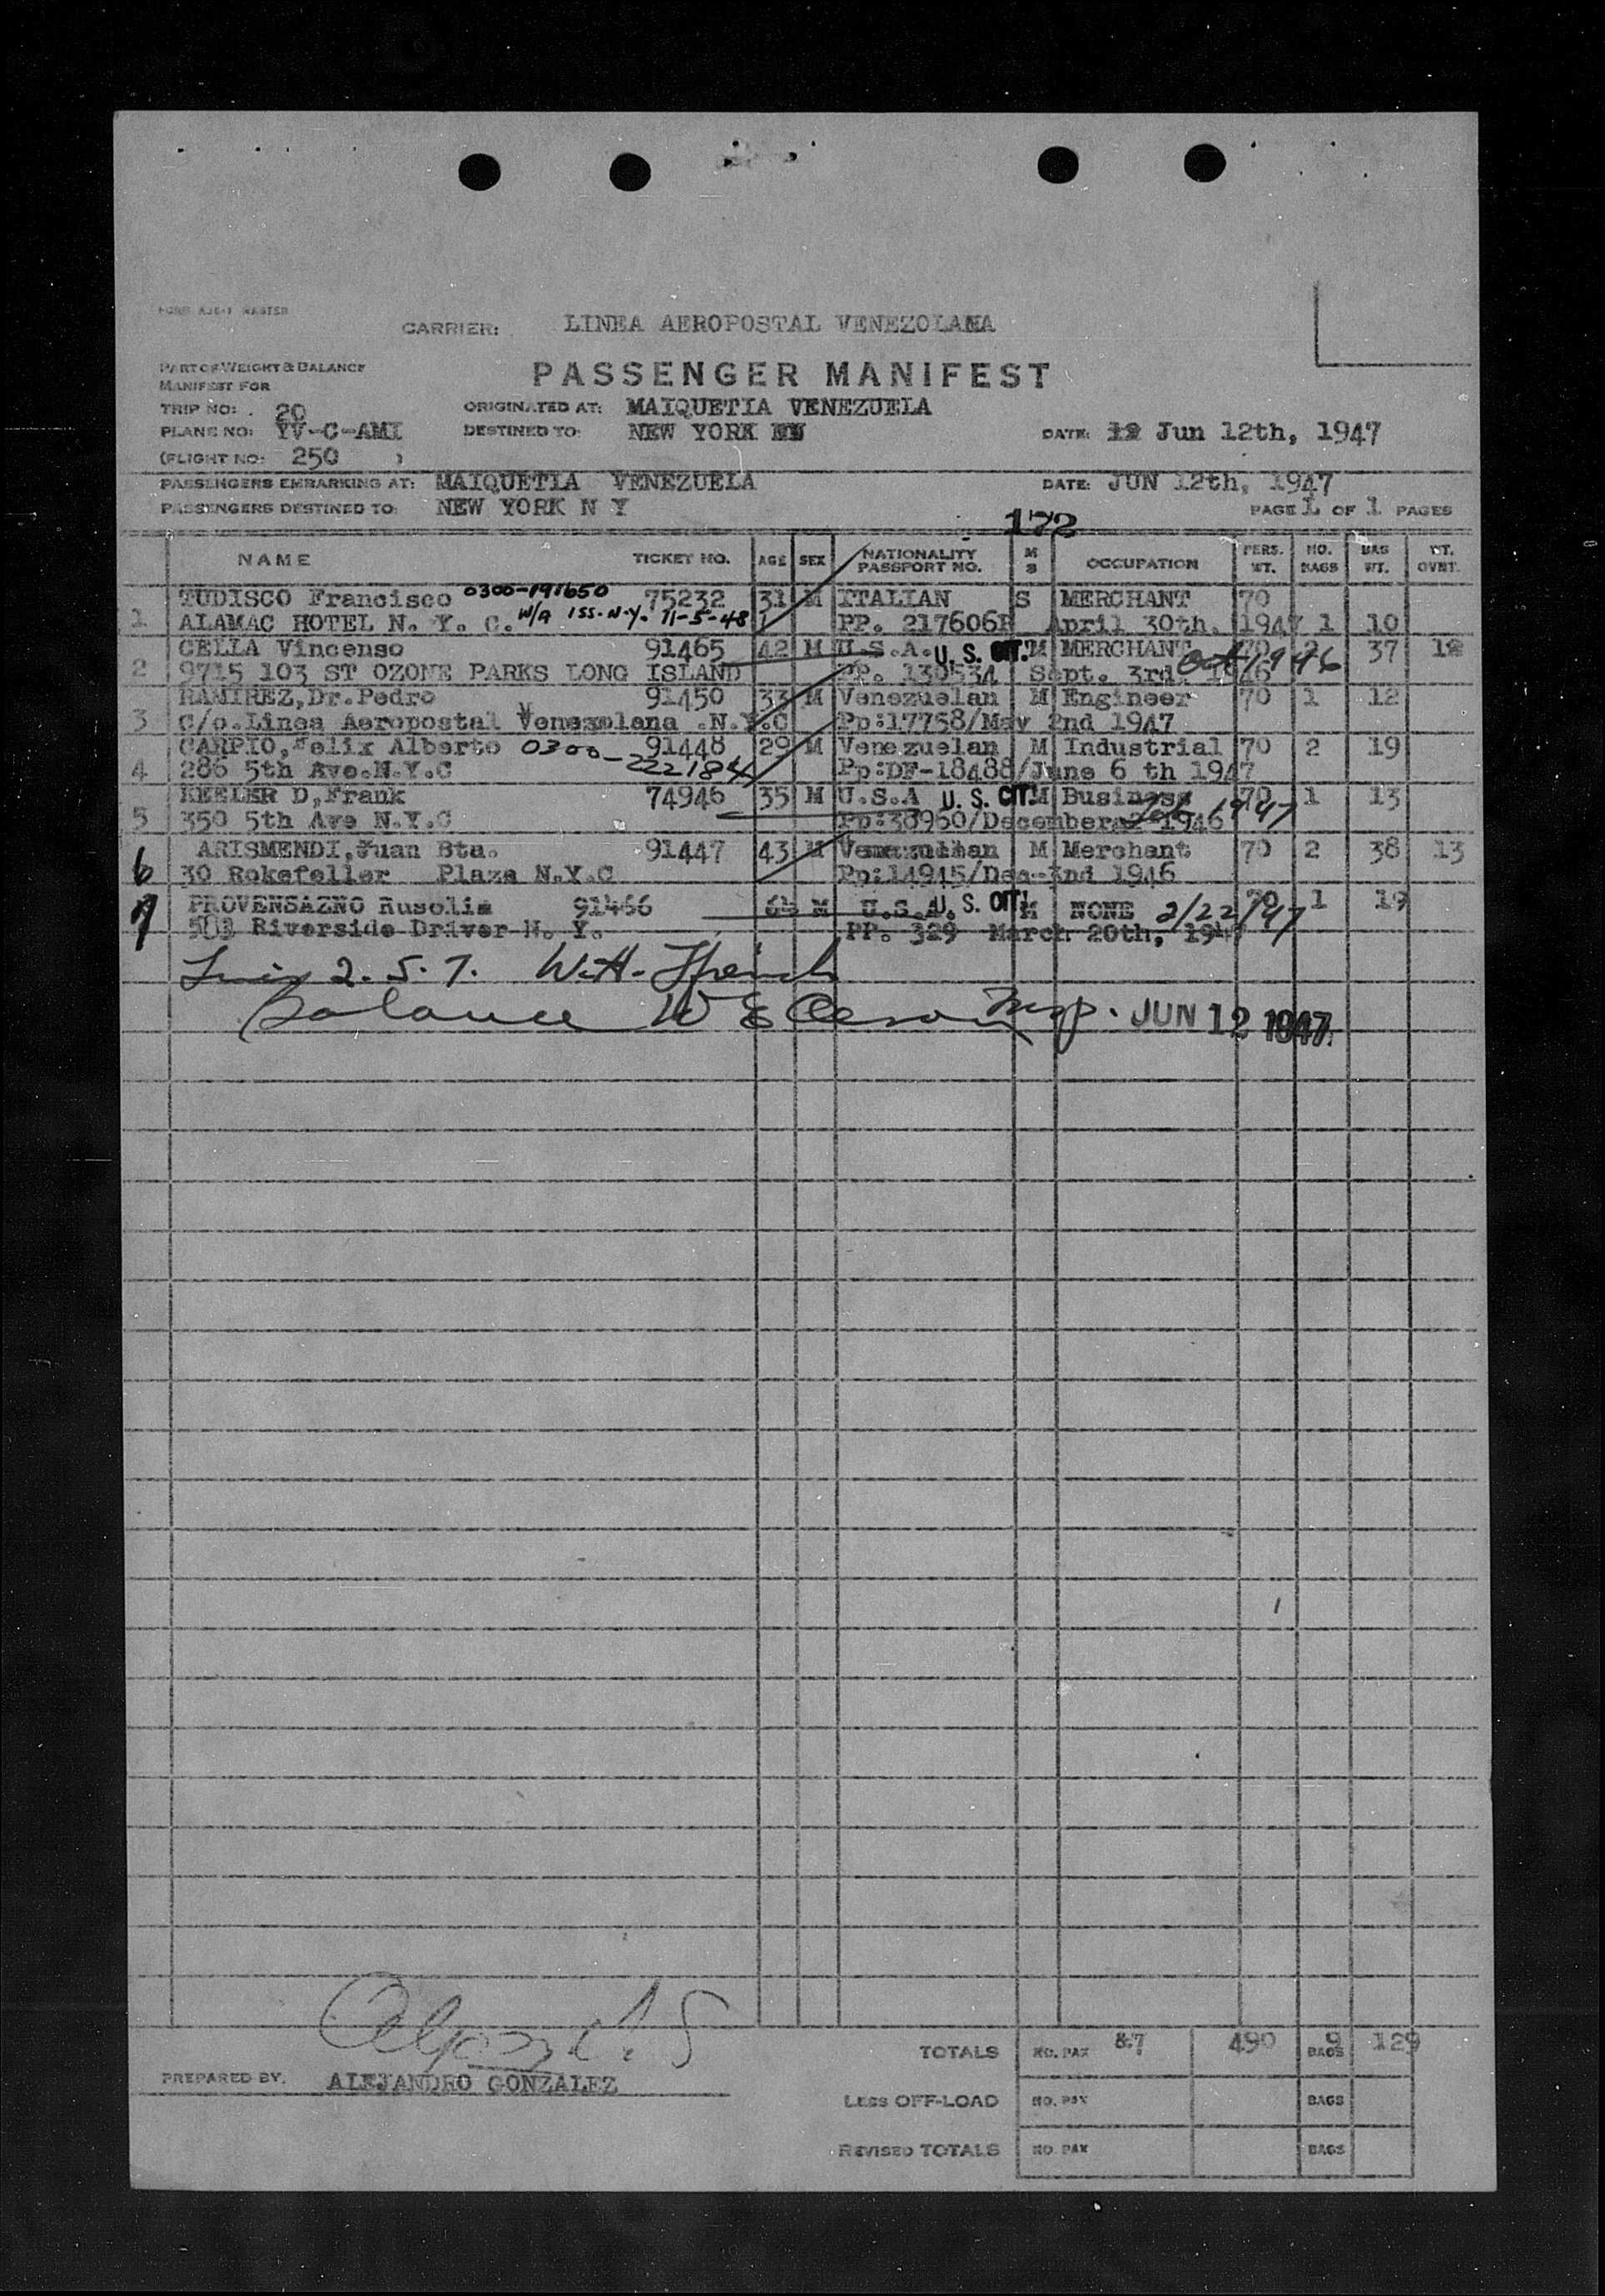 FORM AJE-1 MASTER
CARRIER: LINEA AEROPOSTAL VENEZOLANA
PART OF WEIGHT & BALANCE
PASSENGER MANIFEST
MANIFEST FOR
TRIP NO: 20 ORIGINATED AT: MAIQUETIA VENEZUELA
PLANE NO: YV-C-AMI DESTINED TO: NEW YORK DATE: 12 Jun 12th, 1947
(FLIGHT NO: 250 )
PASSENGERS EMBARKING AT: MAIQUETIA VENEZUELA DATE: JUN 12th, 1947
PASSENGERS DESTINED TO: NEW YORK N Y PAGE 1 OF 1 PAGES
172
NAME TICKET NO. AGE SEX NATIONALITY PASSPORT NO. M S OCCUPATION PERS. WT. NO. BAGS BAG WT. WT. OVWT.
TUDISCO Francisco 0300-191650 75232 31 M ITALIAN S MERCHANT 70
1 ALAMAC HOTEL N. Y. C. W/A ISS. N.Y. 11-5-48 PP. 217606P April 30th. 1947 1 10
CELLA Vincenso 91465 42 M U.S.A. U. S. CIT. M MERCHANT 70 2 37 12
2 9715 103 ST OZONE PARKS LONG ISLAND PP. 130534 Sept. 3rd 1946 Oct 1946
RAMIREZ,Dr.Pedro 91450 33 M Venezuelan M Engineer 70 1 12
3 C/o.Linea Aeropostal Venezolana .N.Y.C Pp:17758/May 2nd 1947
CARPIO,Felix Alberto 0300-222184 91448 29 M Venezuelan M Industrial 70 2 19
4 286 5th Ave.N.Y.C Pp:DF-18488/June 6 th 1947
KEELER D,Frank 74946 35 M U.S.A U. S. CIT. M Business 70 1 13
5 350 5th Ave N.Y.C Pp:38960/December 1946 1947
ARISMENDI,Juan Bta. 91447 43 M Venezuelan M Merchant 70 2 38 13
6 30 Rokefeller Plaza N.Y.C Pp:14945/Dec-2nd 1946
PROVENSAZNO Rusolia 91466 64 M U.S.A U. S. CIT. M NONE 2/22/47 70 1 19
7 503 Riverside Driver N. Y. PP. 329 March 20th, 1947
2. 5. 7. W.H.
Balance W E Insp. JUN 12 1947
TOTALS NO. PAX 87 490 9 BAGS 129
PREPARED BY: ALEJANDRO GONZALEZ
LESS OFF-LOAD NO. PAX BAGS
REVISED TOTALS NO. PAX BAGS